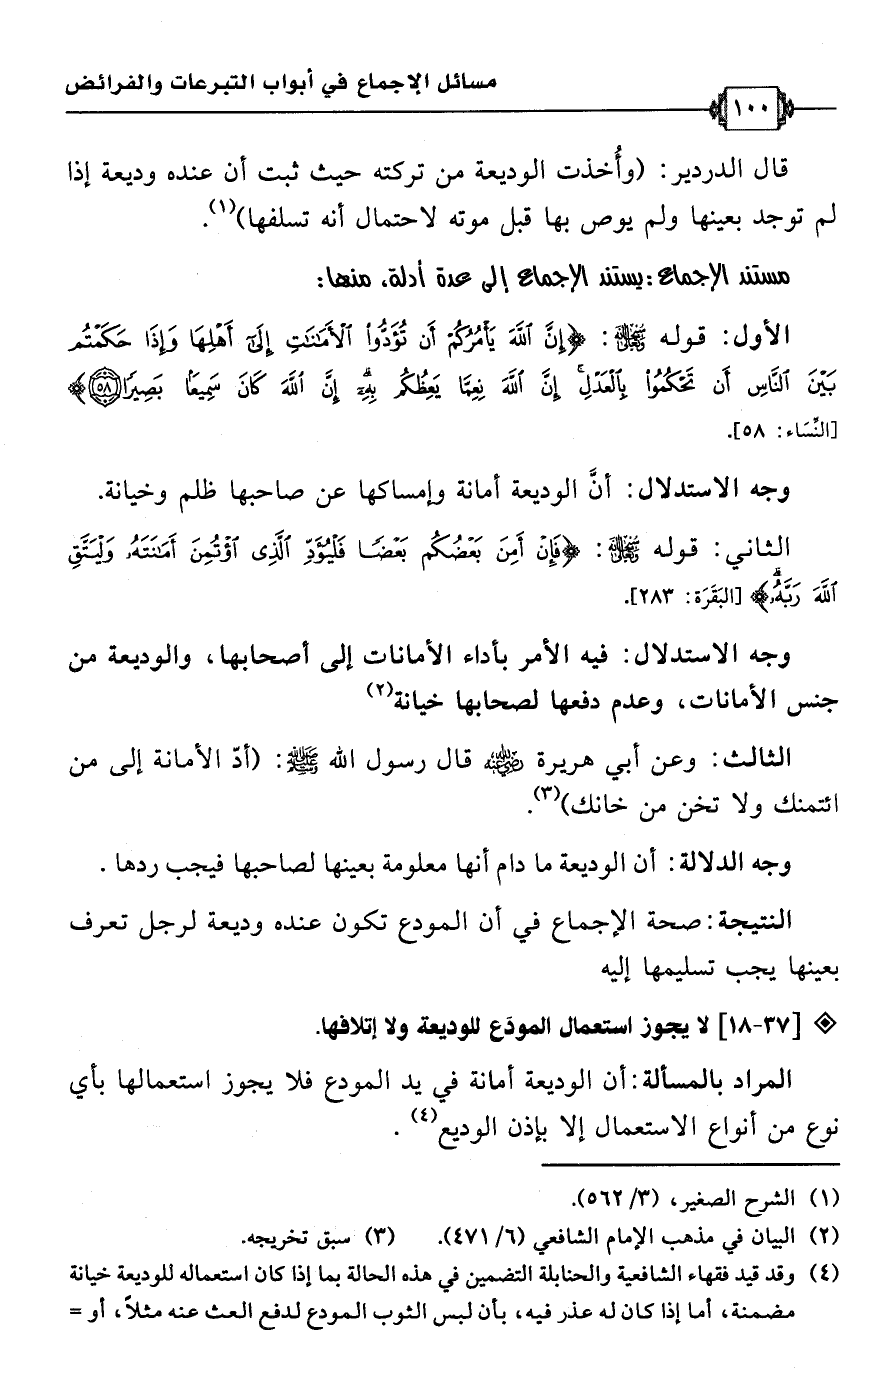 مسائل الإجماع في أبواب التبرعات والفرائض
١٠٠
قال الدردير: (وأُخذت الوديعة من تركته حيث ثبت أن عنده وديعة إذا
لم توجد بعينها ولم يوص بها قبل موته لاحتمال أنه تسلفها)(١).
مستند الإجماع: يستند الإجماع إلى عدة أدلة، منها:
الأول: قوله ﷻ: ﴿إِنَّ ٱللَّهَ يَأْمُرُكُمْ أَن تُؤَدُّوا۟ ٱلْأَمَٰنَٰتِ إِلَىٰٓ أَهْلِهَا وَإِذَا حَكَمْتُم
بَيْنَ ٱلنَّاسِ أَن تَحْكُمُوا۟ بِٱلْعَدْلِ ۚ إِنَّ ٱللَّهَ نِعِمَّا يَعِظُكُم بِهِۦٓ ۗ إِنَّ ٱللَّهَ كَانَ سَمِيعًۢا بَصِيرًا ٥٨﴾
[النِّسَاء: ٥٨].
وجه الاستدلال: أنَّ الوديعة أمانة وإمساكها عن صاحبها ظلم وخيانة.
الثاني: قوله ﷻ: ﴿فَإِنْ أَمِنَ بَعْضُكُم بَعْضًا فَلْيُؤَدِّ ٱلَّذِى ٱؤْتُمِنَ أَمَٰنَتَهُۥ وَلْيَتَّقِ
ٱللَّهَ رَبَّهُۥ ۗ﴾ [البَقَرَة: ٢٨٣].
وجه الاستدلال: فيه الأمر بأداء الأمانات إلى أصحابها، والوديعة من
جنس الأمانات، وعدم دفعها لصحابها خيانة(٢)
الثالث: وعن أبي هريرة رضي الله عنه قال رسول الله ﷺ: (أدّ الأمانة إلى من
ائتمنك ولا تخن من خانك)(٣).
وجه الدلالة: أن الوديعة ما دام أنها معلومة بعينها لصاحبها فيجب ردها .
النتيجة: صحة الإجماع في أن المودع تكون عنده وديعة لرجل تعرف
بعينها يجب تسليمها إليه
[٣٧-١٨] لا يجوز استعمال المودَع للوديعة ولا إتلافها.
المراد بالمسألة: أن الوديعة أمانة في يد المودع فلا يجوز استعمالها بأي
نوع من أنواع الاستعمال إلا بإذن الوديع(٤) .
(١) الشرح الصغير، (٣/ ٥٦٢).
(٢) البيان في مذهب الإمام الشافعي (٦/ ٤٧١). (٣) سبق تخريجه.
(٤) وقد قيد فقهاء الشافعية والحنابلة التضمين في هذه الحالة بما إذا كان استعماله للوديعة خيانة
مضمنة، أما إذا كان له عذر فيه، بأن لبس الثوب المودع لدفع العث عنه مثلاً، أو =